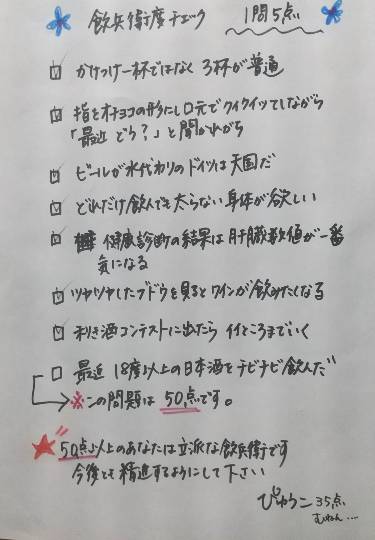 飲兵衛度チェック 1問5点
かけつけ一杯ではなく 3杯が普通
指をオチョコの形にし口元でクイクイッてしながら
「最近 どう？」と聞かれがち
ビールが水代わりのドイツは天国だ
どれだけ飲んでも太らない身体が欲しい
健康診断の結果は肝臓数値が一番
気になる
ツヤツヤしたブドウを見るとワインが飲みたくなる
利き酒コンテストに出たら イイところまでいく
最近 18度以上の日本酒をチビチビ飲んだ
※この問題は 50点です。
50点以上のあなたは立派な飲兵衛です
今後とも精進するようにして下さい
ぴゅうこ 35点
むねん....